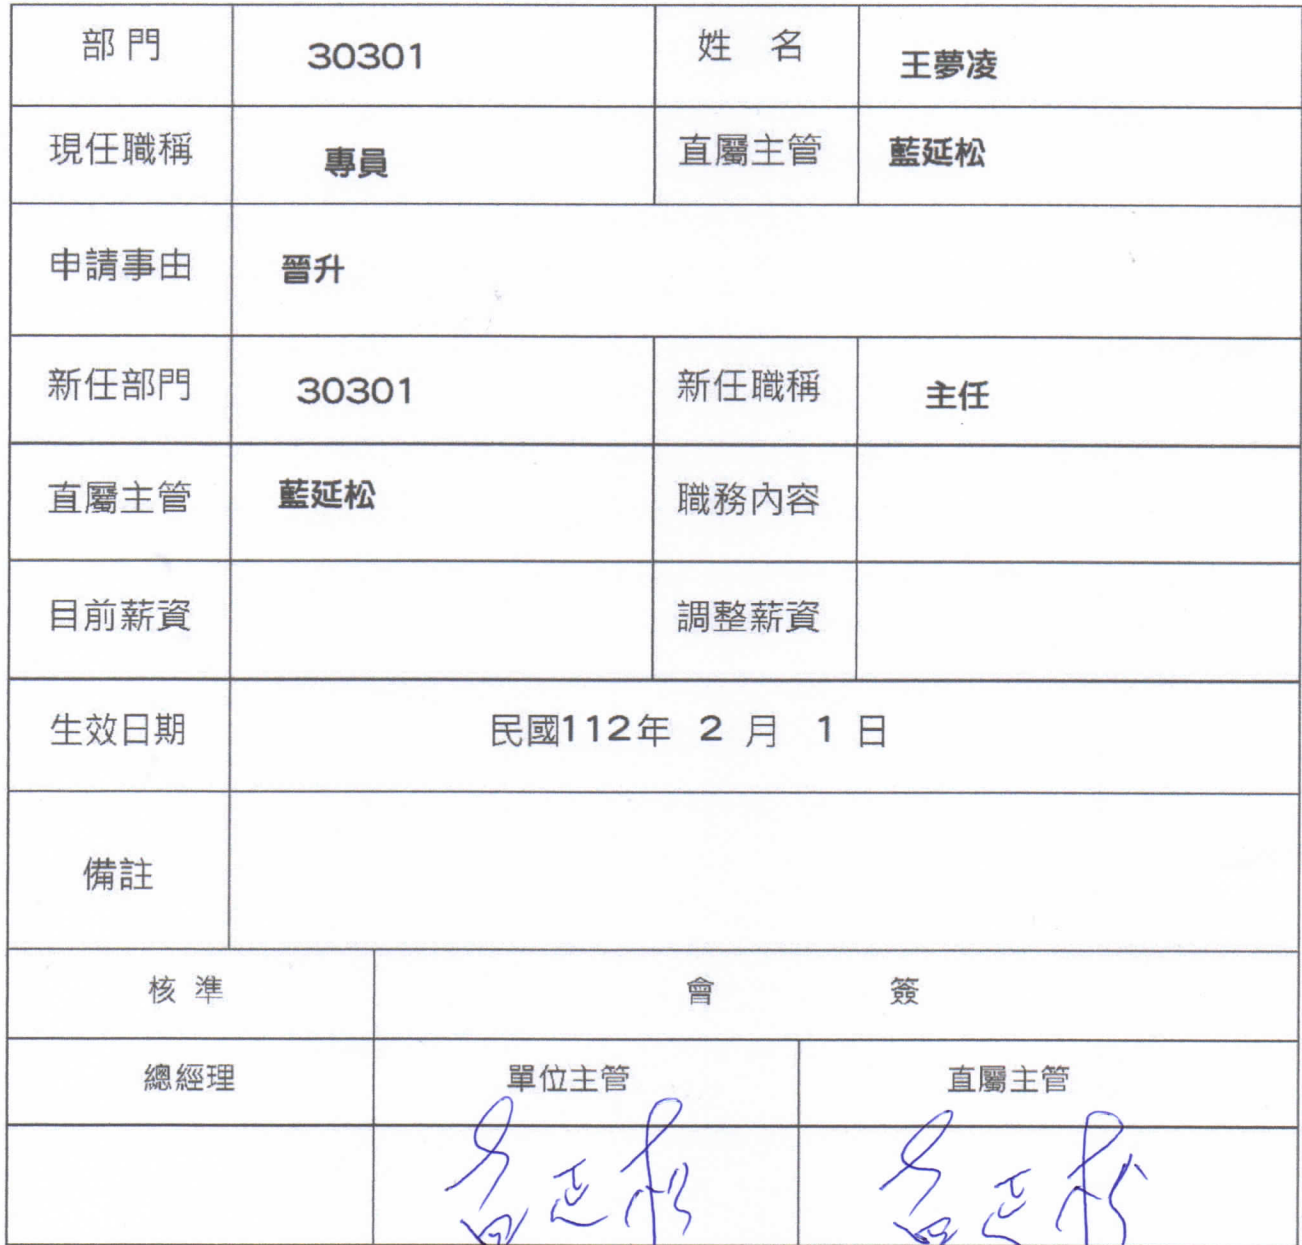 部 門 30301 姓 名 王夢凌
現任職稱 專員 直屬主管 藍延松
申請事由 晉升
新任部門 30301 新任職稱 主任
直屬主管 藍延松 職務內容
目前薪資 調整薪資
生效日期 民國112年 2 月 1 日
備註
核 準 會 簽
總經理 單位主管 直屬主管